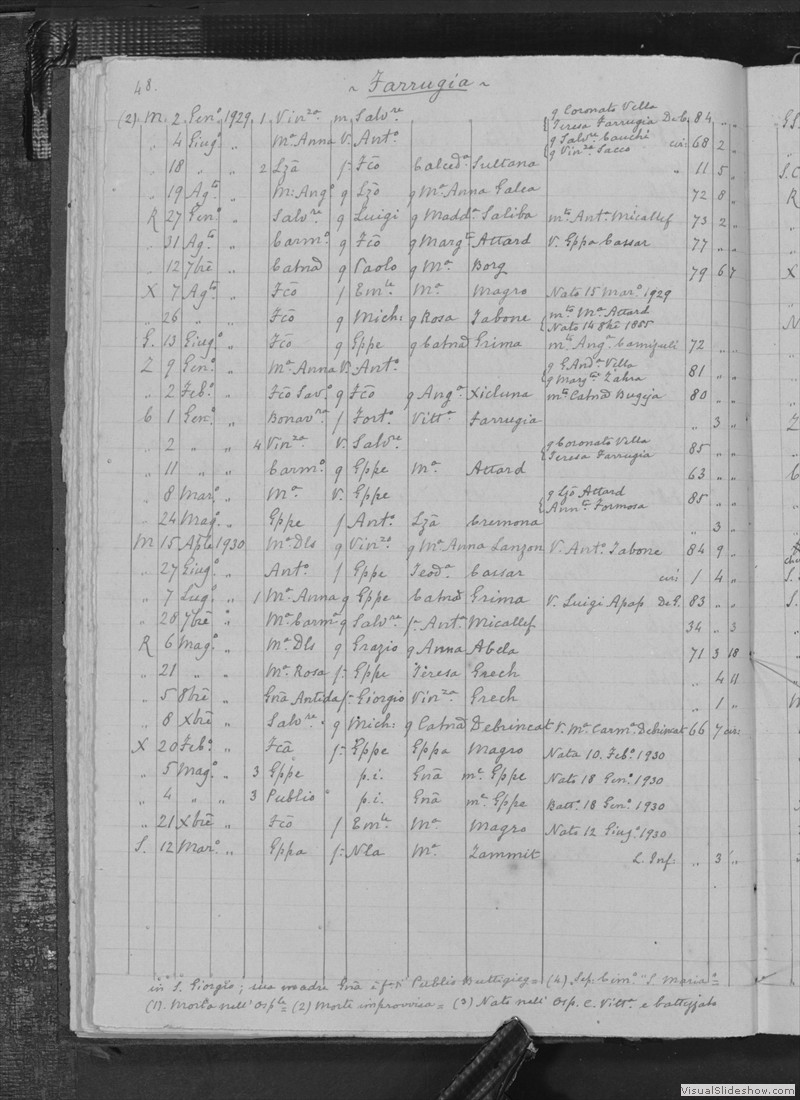 48.
~ Farrugia ~
(2) M. 2 Gen.º 1929 1 Vinza m. Salv.re { q Coronato Vella Teresa Farrugia DeC. 84 „ „
„ 4 Giug.º „ Mª Anna V. Ant.º { q Salv.re Cauchi q Vinza Sacco cir: 68 2 „
„ 18 „ „ 2 Lzã f: Fcõ Calced.a Sultana „ 11 5 „
„ 19 Ag.to „ M: Ang.ª q Lzõ q Mª Anna Galea 72 8 „
R 27 Gen.º „ Salv.re q Luigi q Madd.a Saliba m.to Ant.a Micallef 73 2 „
„ 31 Ag.to „ Carm.º q Fcõ q Marg.ta Attard V. Eppa Cassar 77 „ „
„ 12 7brẽ „ Catnã q Paolo q Mª Borg 79 6 7
X 7 Ag.to „ Fcõ f Em.le Mª Magro Nato 15 Mar.º 1929
„ 26 „ „ Fcõ q Mich: q Rosa Tabone { m.to Mª Attard Nato 14 8brẽ 1855
G. 13 Giug.º „ Fcõ q Eppe q Catnã Grima m.to Ang.a Camizuli 72 „ „
Z 9 Gen.º „ Mª Anna V. Ant.º { q G. And.a Villa q Marg.ta Zahra 81 „ „
„ 2 Feb.º „ Fcõ Sav.º q Fcõ q Ang.a Xicluna m.to Catnã Bugeja 80 „ „
6 1 Gen.º „ Bonav.ra f Fort.º Vitt.a Farrugia „ 3 „
„ 2 „ „ 4 Vinza V. Salv.re { q Coronato Vella Teresa Farrugia 85 „ „
„ 11 „ „ Carm.º q Eppe Mª Attard 63 „ „
„ 8 Mar.º „ Mª V. Eppe { q Ljõ Attard Ann.ta Formosa 85 „ „
„ 24 Mag.º „ Eppe f Ant.º Lzã Cremona „ 3 „
M 15 Aple 1930 Mª Dls q Vin.zo q Mª Anna Lanzon V. Ant.º Tabone 84 9 „
„ 27 Giug.º „ Ant.º f Eppe Teod.a Cassar cir: 1 4 „
„ 7 Lug.º „ 1 Mª Anna q Eppe Catnã Grima V. Luigi Apap DeG. 83 „ „
„ 28 7brẽ „ Mª Carm.a q Salv.re f: Ant.a Micallef 34 „ 3
R 6 Mag.º „ Mª Dls q Grazio q Anna Abela 71 3 18
„ 21 „ „ Mª Rosa f: Eppe Teresa Grech „ 4 11
„ 5 8brẽ „ Gnã Antida f: Giorgio Vinza Grech „ 1 „
„ 8 Xbrẽ „ Salv.re q Mich: q Catnã Debrincat V. Mª Carm.a Debrincat 66 7 cir:
X 20 Feb.º „ Fcã f: Eppe Eppa Magro Nata 10. Feb.º 1930
„ 5 Mag.º „ 3 Eppe p.i. Gnã m.e Eppe Nato 18 Gen.º 1930
„ 4 „ „ 3 Publio p.i. Gnã m.e Eppe Batt.º 18 Gen.º 1930
„ 21 Xbrẽ „ Fcõ f Em.le Mª Magro Nato 12 Giug.º 1930
S. 12 Mar.º „ Eppa f: Nla Mª Zammit L. Inf: „ 3 „
in S. Giorgio; sua madre Gnã è f: di Publio Buttigieg = (4) Sep. Cim.º "S. Maria" =
(1). Morta nell' Osp.le = (2) Morte improvvisa = (3) Nato nell' Osp. C. Vitt.a e battezzato
VisualSlideshow.com